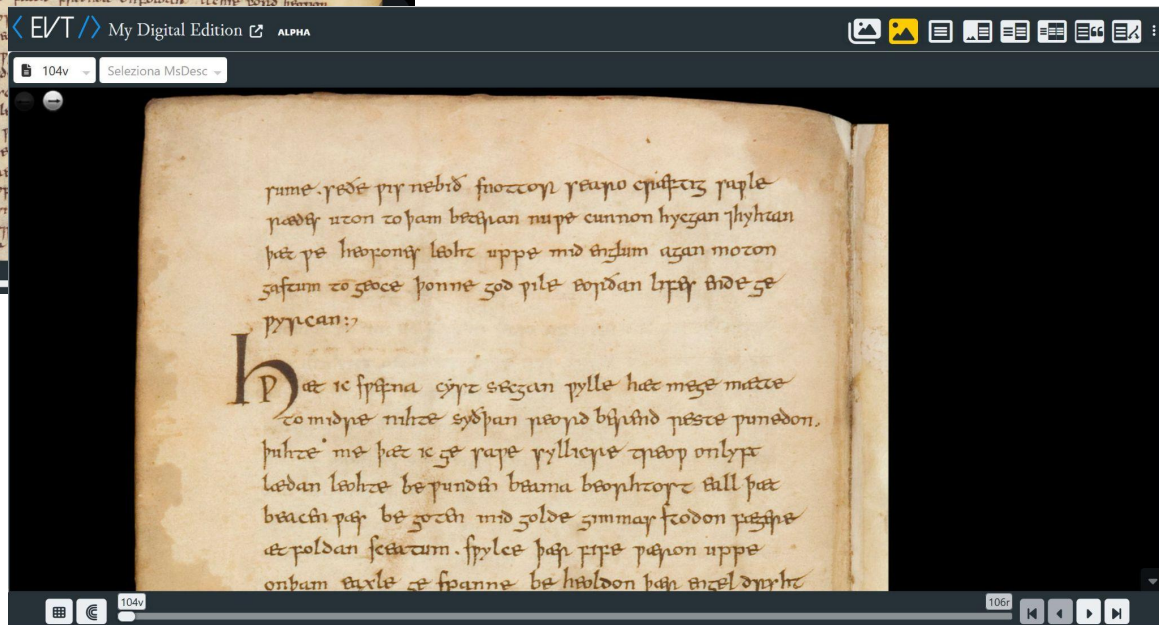 EVT My Digital Edition ALPHA
104v Seleziona MsDesc
sume. seðe ƿis nebið snottor searo cræftig saƿle
rædes uton to þam beteran nuƿe cunnon hycgan ⁊hyhtan
þæt ƿe heofones leoht uppe mid englum agan moton
gastum to geoce þonne god ƿile eorðan lifes ende ge
ƿyrcan:,
hǷæt ic sƿefna cyst secgan ƿylle hæt mege mætte
to midre nihte syðþan reord berend reste ƿunedon.
þuhte me þæt ic ge saƿe syllicre treoƿ onlyft
lædan leohte be ƿunden beama beorhtost eall þæt
beacen ƿæs be goten mid golde gimmas stodon fægere
æt foldan sceatum. sƿylce þær fife ƿæron uppe
onþam eaxle ge spanne be heoldon þær engel dryht
104v 106r